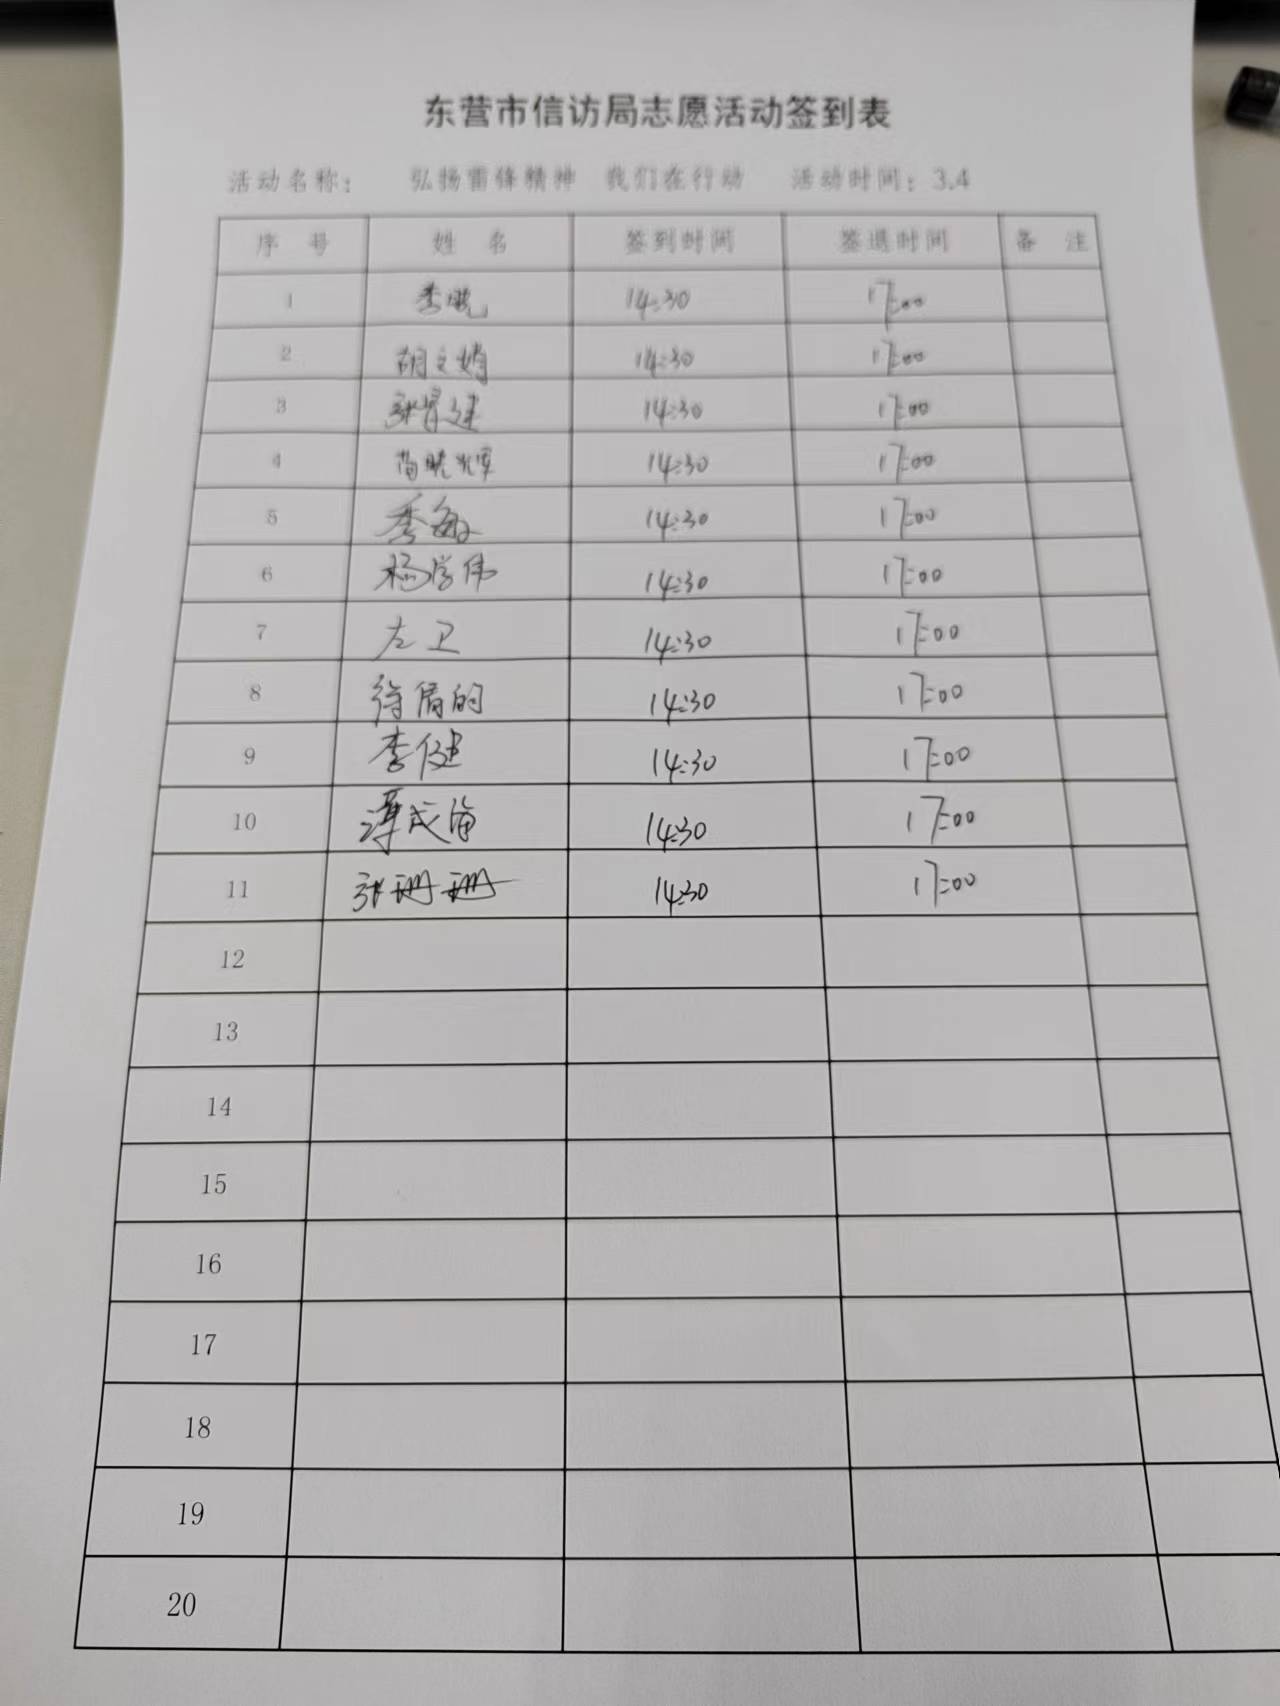 东营市信访局志愿活动签到表
活动名称： 弘扬雷锋精神 我们在行动 活动时间：3.4
序 号 姓 名 签到时间 签退时间 备 注
1 李晓 14:30 17:00
2 胡文娟 14:30 17:00
3 张肾建 14:30 17:00
4 14:30 17:00
5 季敏 14:30 17:00
6 杨学伟 14:30 17:00
7 左卫 14:30 17:00
8 14:30 17:00
9 李健 14:30 17:00
10 14:30 17:00
11 张珊珊 14:30 17:00
12
13
14
15
16
17
18
19
20